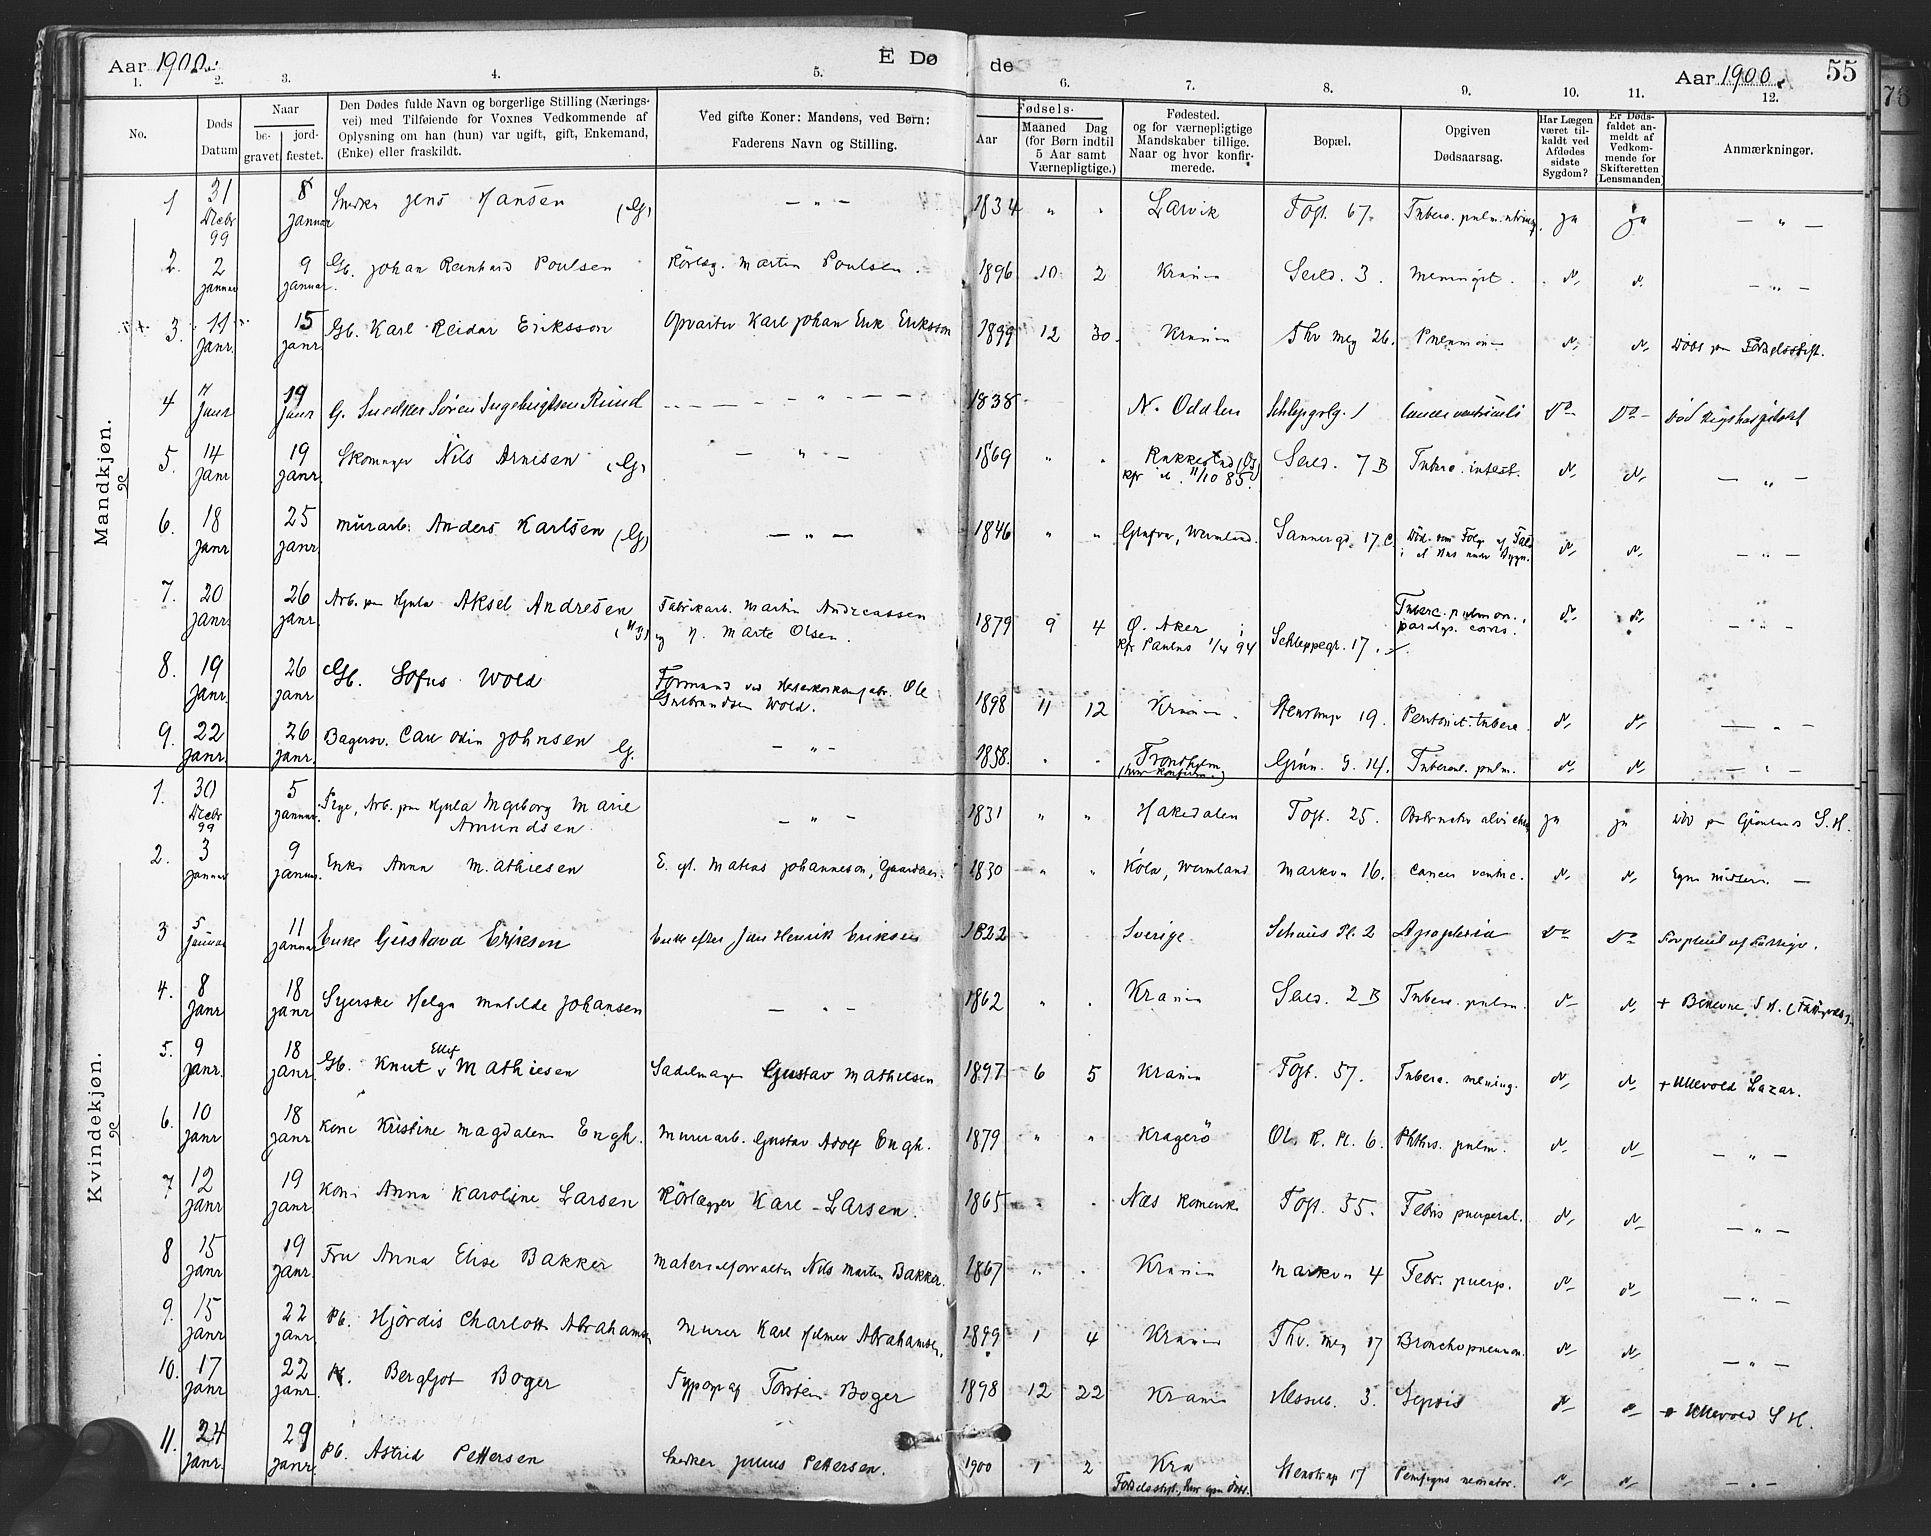 Aar 1900.
E Dø
de
Aar 1900.
55
1. 2. 3. 4. 5. 6. 7. 8. 9. 10. 11. 12.
No.
Døds Datum
Naar
be- gravet.
jord- fæstet.
Den Dødes fulde Navn og borgerlige Stilling (Nærings-
vei) med Tilføiende for Voxnes Vedkommende af
Oplysning om han (hun) var ugift, gift, Enkemand,
(Enke) eller fraskildt.
Ved gifte Koner: Mandens, ved Børn:
Faderens Navn og Stilling.
Fødsels-
Aar
Maaned Dag
(for Børn indtil
5 Aar samt
Værnepligtige.)
Fødested.
og for værnepligtige
Mandskaber tillige.
Naar og hvor konfir-
merede.
Bopæl.
Opgiven
Dødsaarsag.
Har Lægen
været til-
kaldt ved
Afdødes
sidste
Sygdom?
Er Døds-
faldet an-
meldt af
Vedkom-
mende for
Skifteretten
Lensmanden
Anmærkninger.
Mandkjøn.
1 31 Decbr 99 8 Januar Snedker Jens Hansen (G) — " — 1834 " " Larvik Fogt. 67. Tuberc. pulm. ja ja — " —
2. 2 Januar 9 Januar Gb. Johan Reinhard Poulsen Rörlæg. Martin Poulsen. 1896 10 2 Krania Seild. 3. Meningit. — " —
3. 11 Janr. 15 Janr Gb. Karl Reidar Eriksson Opvarter Karl Johan Erik Eriksson 1899 12 30. Krania Thv Mey 26. Pneumoni Død paa Fødselsstift.
4 Janr 19 Janr G. Snedker Søren Ingebrigtsen Ruud — " — 1838 N. Odalen Schleppgrg. 1 Cancer ventriculi Do Do Død Rigshospitalet
5. 14 Janr 19 Janr. Skomager Nils Arnisen (G) — " — 1869 " " Rakkestad
kfr 11/10 85. Seild. 7 B Tuberc. intest. — " —
6. 18 Janr 25 Janr Murarb. Anders Karlsen (G) — " — 1846 " " Wermland. Sannergd. 17 c. Død. som Følge af Fald — " —
7. 20 Janr. 26 Janr. Arb. paa Hjula Aksel Andresen Fabrikarb. Martin Andreassen
og H. Marte Olsen. 1879 9 4 Ø. Aker
kfr Paulus 1/4 94 Schleppegr. 17. Tuberc. pulmon. — " —
8. 19 Janr. 26 Janr Gb. Sofus Wold Formand ved Ole
Gulbrandsen Wold. 1898 11 12 Krania. Stenstrup 19. Peritonit. tuberc. — " —
9. 22 Janr. 26 Janr. Bagersv. Carl Odin Johnsen G. — " — 1858. Trondhjem Grün. g. 14. Tubercul. pulm. — " —
Kvindekjøn.
1. 30 Decbr 99 5 Januar. Pige, Arb. paa Hjula Ingeborg Marie
Amundsen — " — 1831 " " Hakedalen Fogt. 25. ja ja Død paa S. H.
2. 3 Januar 9 Januar. Enke Anna Mathiesen E. ef. Matias Johannesen, 1830 " " Köla, Wermland Markvn 16. Cancer ventric. Egne Midler. —
3 5 Januar 11 Januar Enke Gustava Erikson Enke efter Jan Henrik Eriksen 1822 Sverige. Schous Pl. 2 Apoplexia Do Do Forpleiet af Fattigv.
4. 8 Janr 18 Janr Syerske Helga Matilde Johansen — " — 1862 " Krania Seild. 2 B Tuberc. pulm. + S. H. (Fattigvæs.)
5. 9 Janr. 18 Janr. Gb. Knut Ellef Mathiesen Sadelmager Gustav Mathiesen 1897 6 5 Krania Fogt. 57. Tuberc. mening. + Ullevold Lazar.
6. 10 Janr 18 Janr Kone Kristine Magdalene Engh. Murarb. Gustav Adolf Engh. 1879 " " Kragerö Ol. R. Pl. 6. Phthis. pulm. — " —
7 12 Janr 19 Janr Kone Anna Karoline Larsen Rörlægger Karl Larsen. 1865 Næs Romerike Fogt. 55. Febris puerperal. — " —
8 15 Janr 19 Janr. Fru Anna Elise Bakker Materialforvalter Nils Martin Bakker. 1867 " Krania Markvn 4 Febr. puerp. — " —
9. 15 Janr 22 Janr. Pb. Hjördis Charlotte Abrahamsen Murer Karl Hilmer Abrahamsen. 1899 1 4 Krania Thv. Mey 17 Bronchopneumon. — " —
10. 17 Janr 22 Janr. Pb. Bergljot Boger Typograf Torstein Boger 1898 12 22 Krania 3. Sepsis + Ullevold S H.
11. 24 Janr. 29 Janr. Pb. Astrid Pettersen Snedker Julius Pettersen. 1900 1 2 Kra
Fødselsstift., Stenstrup 17 Pemfigus neonator. — " —